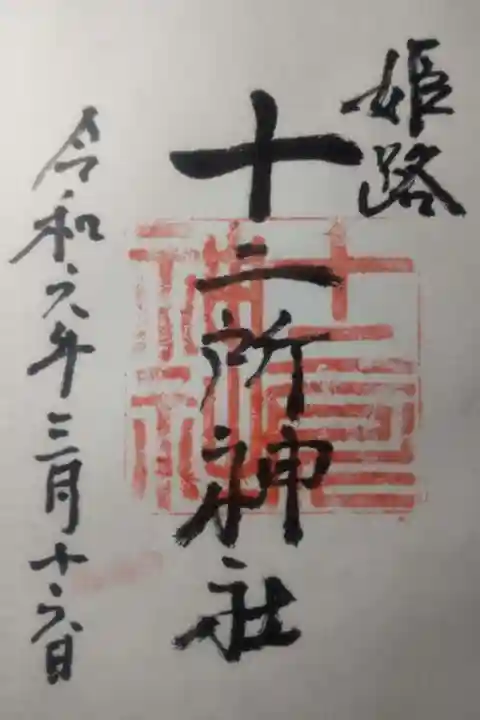 姫路
十二所神社
令和六年三月十六日